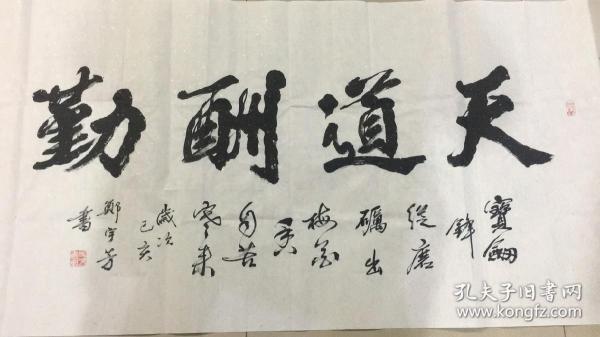 天道酬勤
寶劍
鋒
從磨
礪出
梅花
香
自苦
寒來
歲次
己亥
鄭宇芳
書
孔夫子旧书网
www.kongfz.com